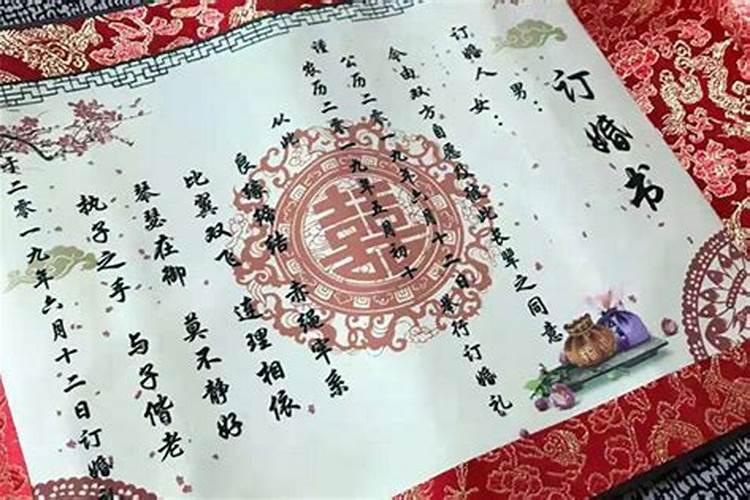 订婚书
男：
订婚人女：
今由双方自愿及征此长辈之同意
公历二零一九年六月十二日举行订婚礼
谨农历二零一九年五月初十
从此
良缘缔结 赤绳牢系
比翼双飞 连理相依
琴瑟在御 莫不静好
执子之手 与子偕老
于二零一九年六月十二日订婚
囍